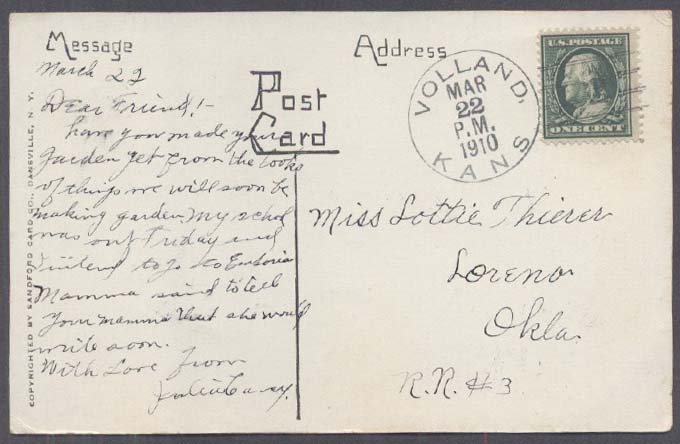 Message
Address
Post
Card
VOLLAND,
MAR
22
P.M.
1910
KANS
U.S. POSTAGE
ONE CENT
COPYRIGHTED BY SANDFORD CARD CO., DANSVILLE, N. Y.
March 22
Dear Friend!-
have you made your
garden yet from the looks
of things we will soon be
making garden. My school
was out Friday and
I intend to go to
Mamma said to tell
your mamma that she would
write soon.
With Love from
Miss Lottie Thierer
Loreno
Okla.
R.R. #3